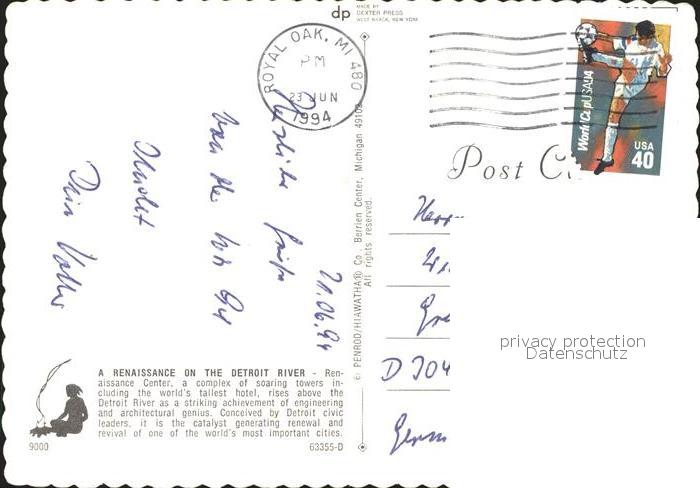 MADE BY
dp DEXTER PRESS
WEST NYACK, NEW YORK
ROYAL OAK, MI 480
PM
23 JUN
1994
World Cup USA 94
USA
40
Post C
21.06.94
Herzliche Grüße
von der
Dein
Herr
D 304
Germ
privacy protection
Datenschutz
© PENROD/HIAWATHA® Co., Berrien Center, Michigan 49102
All rights reserved.
A RENAISSANCE ON THE DETROIT RIVER - Ren-
aissance Center, a complex of soaring towers in-
cluding the world's tallest hotel, rises above the
Detroit River as a striking achievement of engineering
and architectural genius. Conceived by Detroit civic
leaders, it is the catalyst generating renewal and
revival of one of the world's most important cities.
9000
63355-D